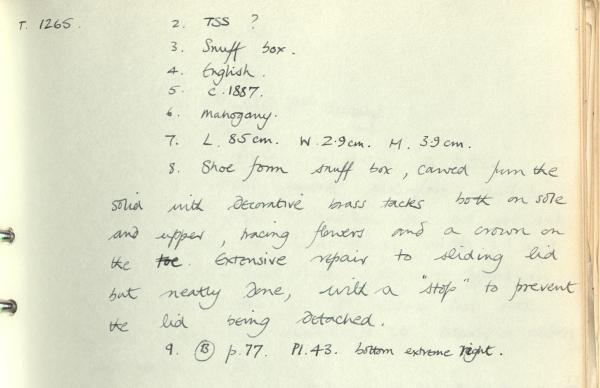 T. 1265.	2. TSS ?
3. Snuff box.
4. English.
5 c.1887.
6. mahogany.
7. L. 8.5cm. W. 2.9cm. H. 3.9cm.
8. Shoe form snuff box, carved from the
solid with decorative brass tacks both on sole
and upper, tracing flowers and a crown on
the toe. Extensive repair to sliding lid
but neatly done, with a "stop" to prevent
the lid being detached.
9. B p.77. Pl.43. bottom extreme right.